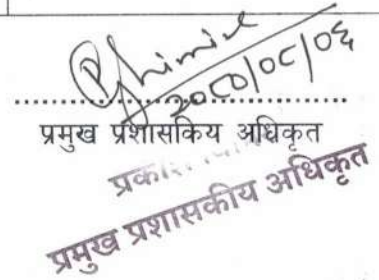 २०८०/०८/०६
प्रमुख प्रशासकिय अधिकृत
प्रमुख प्रशासकीय अधिकृत